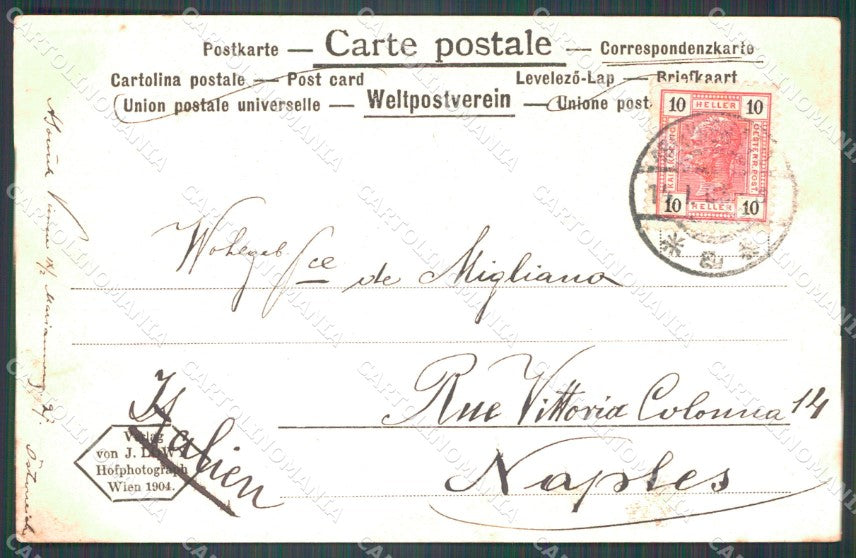 Postkarte — Carte postale — Correspondenzkarte
Cartolina postale — Post card Levelező-Lap — Briefkaart
Union postale universelle — Weltpostverein — Unione post
10 HELLER 10
OESTERR. POST
10 HELLER 10
Wohlgeb
de Migliano
Italien
Rue Vittoria Colonna 14
Naples
Verlag
von J. LÖWY
Hofphotograph
Wien 1904.
CARTOLINOMANIA